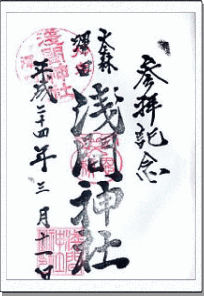 参拝記念
大森
澤田
浅間神社
平成二十四年三月十一日
浅間神社